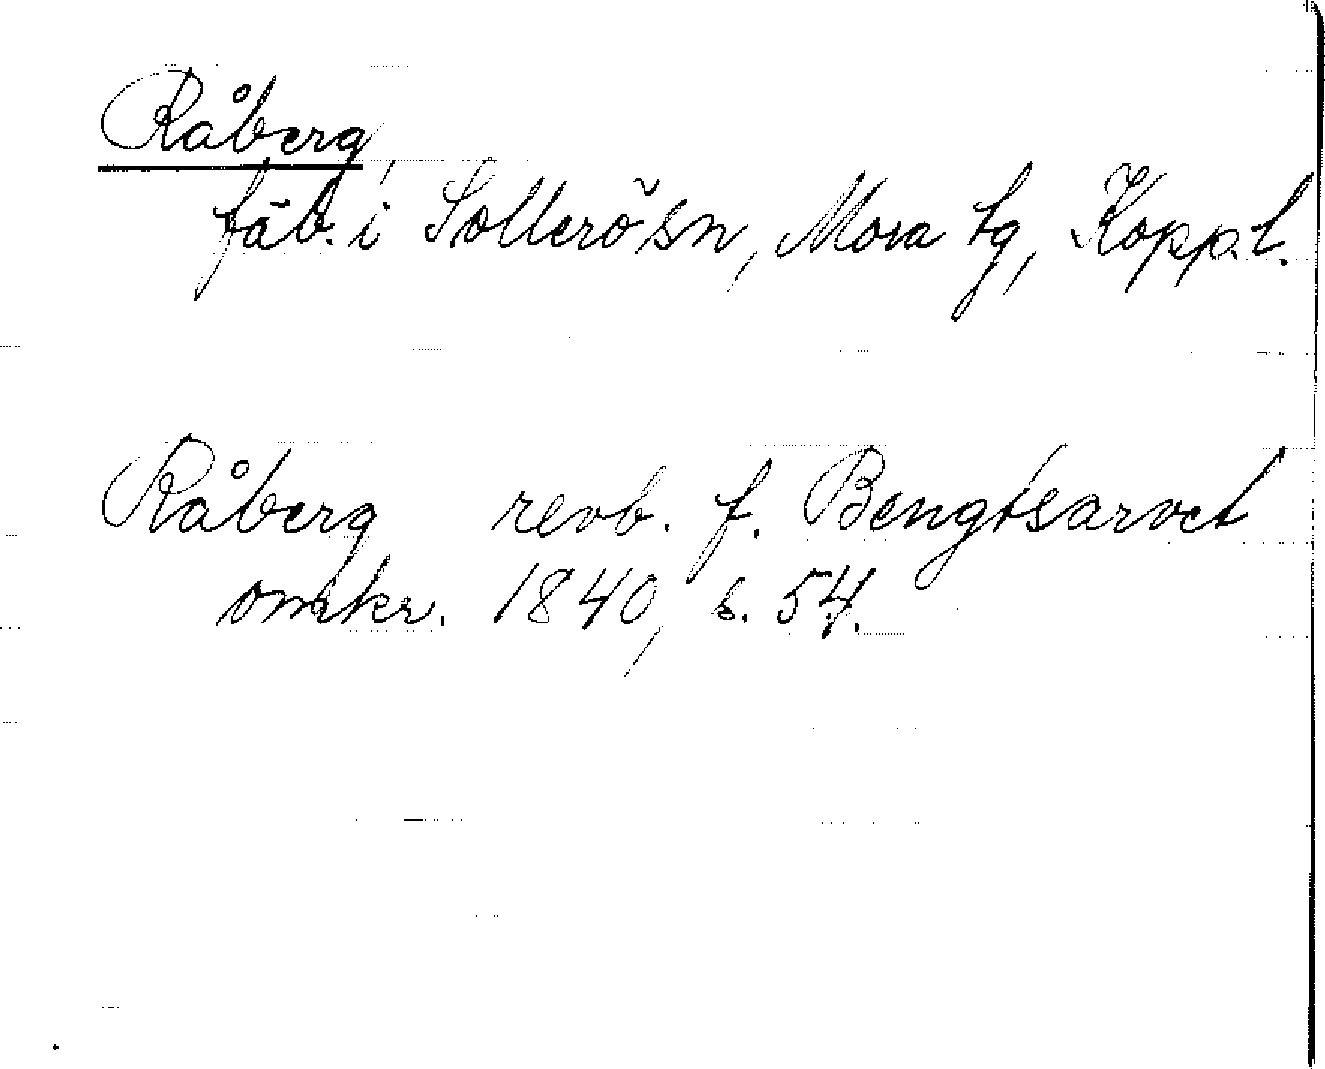 Råberg
fäb. i Sollerö sn, Mora tg, Kopp.l.
Råberg revb. f. Bengtsarvet
omkr. 1840, s. 54.